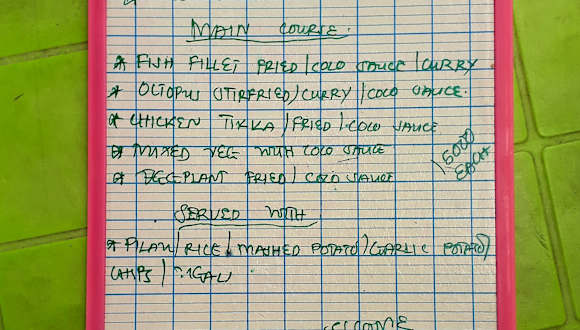 MAIN COURSE.
* FISH FILLET FRIED / COCO SAUCE / CURRY
* OCTOPUS STIRFRIED / CURRY / COCO SAUCE.
* CHICKEN TIKKA / FRIED / COCO SAUCE
* MIXED VEGE WITH COCO SAUCE
* EGGPLANT FRIED / COCO SAUCE
15000 EACH
SERVED WITH
* PILAU / RICE / MASHED POTATO / GARLIC POTATO /
CHIPS / UGALI